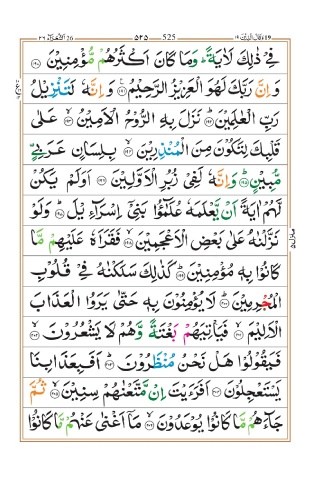 وقال الذين ١٩ ٥٢٥ 525 الشعراء 26 ٢٦
فِىْ ذٰلِكَ لَاٰيَةً ؕ وَمَا كَانَ اَكْثَرُهُمْ مُّؤْمِنِيْنَ ﴿۱۹۰﴾
وَاِنَّ رَبَّكَ لَهُوَ الْعَزِيْزُ الرَّحِيْمُ ﴿۱۹۱﴾ وَاِنَّهٗ لَتَنْزِيْلُ
رَبِّ الْعٰلَمِيْنَ ؕ﴿۱۹۲﴾ نَزَلَ بِهِ الرُّوْحُ الْاَمِيْنُ ۙ﴿۱۹۳﴾ عَلٰى
قَلْبِكَ لِتَكُوْنَ مِنَ الْمُنْذِرِيْنَ ۙ﴿۱۹۴﴾ بِلِسَانٍ عَرَبِىٍّ
مُّبِيْنٍ ؕ﴿۱۹۵﴾ وَاِنَّهٗ لَفِىْ زُبُرِ الْاَوَّلِيْنَ ﴿۱۹۶﴾ اَوَلَمْ يَكُنْ
لَّهُمْ اٰيَةً اَنْ يَّعْلَمَهٗ عُلَمٰٓؤُا بَنِىْۤ اِسْرَآءِيْلَ ؕ﴿۱۹۷﴾ وَلَوْ
نَزَّلْنٰهُ عَلٰى بَعْضِ الْاَعْجَمِيْنَ ۙ﴿۱۹۸﴾ فَقَرَاَهٗ عَلَيْهِمْ مَّا
كَانُوْا بِهٖ مُؤْمِنِيْنَ ؕ﴿۱۹۹﴾ كَذٰلِكَ سَلَكْنٰهُ فِىْ قُلُوْبِ
الْمُجْرِمِيْنَ ؕ﴿۲۰۰﴾ لَا يُؤْمِنُوْنَ بِهٖ حَتّٰى يَرَوُا الْعَذَابَ
الْاَلِيْمَ ۙ﴿۲۰۱﴾ فَيَاْتِيَهُمْ بَغْتَةً وَّهُمْ لَا يَشْعُرُوْنَ ۙ﴿۲۰۲﴾
فَيَقُوْلُوْا هَلْ نَحْنُ مُنْظَرُوْنَ ؕ﴿۲۰۳﴾ اَفَبِعَذَابِنَا
يَسْتَعْجِلُوْنَ ﴿۲۰۴﴾ اَفَرَءَيْتَ اِنْ مَّتَّعْنٰهُمْ سِنِيْنَ ۙ﴿۲۰۵﴾ ثُمَّ
جَآءَهُمْ مَّا كَانُوْا يُوْعَدُوْنَ ۙ﴿۲۰۶﴾ مَاۤ اَغْنٰى عَنْهُمْ مَّا كَانُوْا